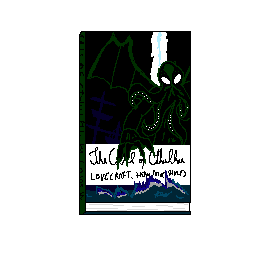 The Call of Cthulhu
LOVECRAFT, HOWARD PHILLIPS